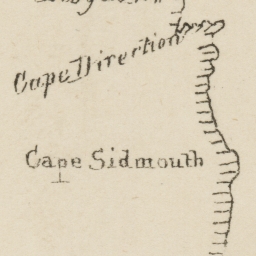 Cape Direction
Cape Sidmouth